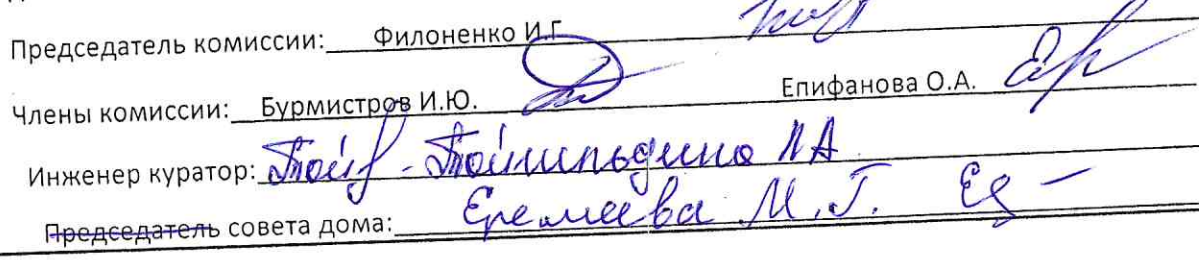 Председатель комиссии: Филоненко И.Г
Члены комиссии: Бурмистров И.Ю. Епифанова О.А.
Инженер куратор:
Председатель совета дома: Еремеева М.Г.